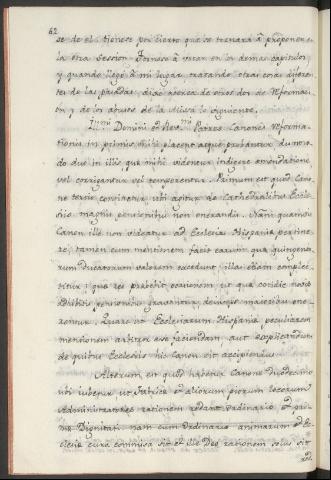 62
se de el tienese por cierto que se tornará à proponer en
la otra session. Tornose à votar en los demas capitulos
y quando llegó à mi lugar, tratando otras cosas diferen
tes de las pasadas, dixe acerca de estos dos de reforma
cion y de los abusos de la Missa lo siguiente.
Ill.mi Domini et Rev.mi Patres Canones reforma
tionis in primis mihi placent atque probantur, dummo
do duo in illis, que mihi videntur indigere emendatione
vel corrigantur vel temperentur. Primum est quod Cano
ne tertio cavetur, ubi agitur de Cathedralibus Eccle
siis magnis pensionibus non onerandis. Nam quamvis
Canon ille non videatur ad Ecclesias Hispanie pertine
re, tamen cum mentionem facit earum que quingento
rum Ducatorum valorem excedunt, illas etiam complec
titur, que res prebebit occasionem ut que
pensionibus gravantur, deinceps maioribus one
rentur. Quare ut Ecclesiarum Hispanie peculiarem
mentionem arbitror esse faciendam, aut explicandum
de quibus Ecclesiis hic Canon sit accipiendus.
Alterum est quod habetur Canone Undecimo
ubi iubetur ut Fabrice et aliorum piorum locorum
Administratores rationem reddant Ordinario et
Dignitati nam cum Ordinario animarum et Ec
clesie cura commissa sit et ille Deo rationem solus sit
red